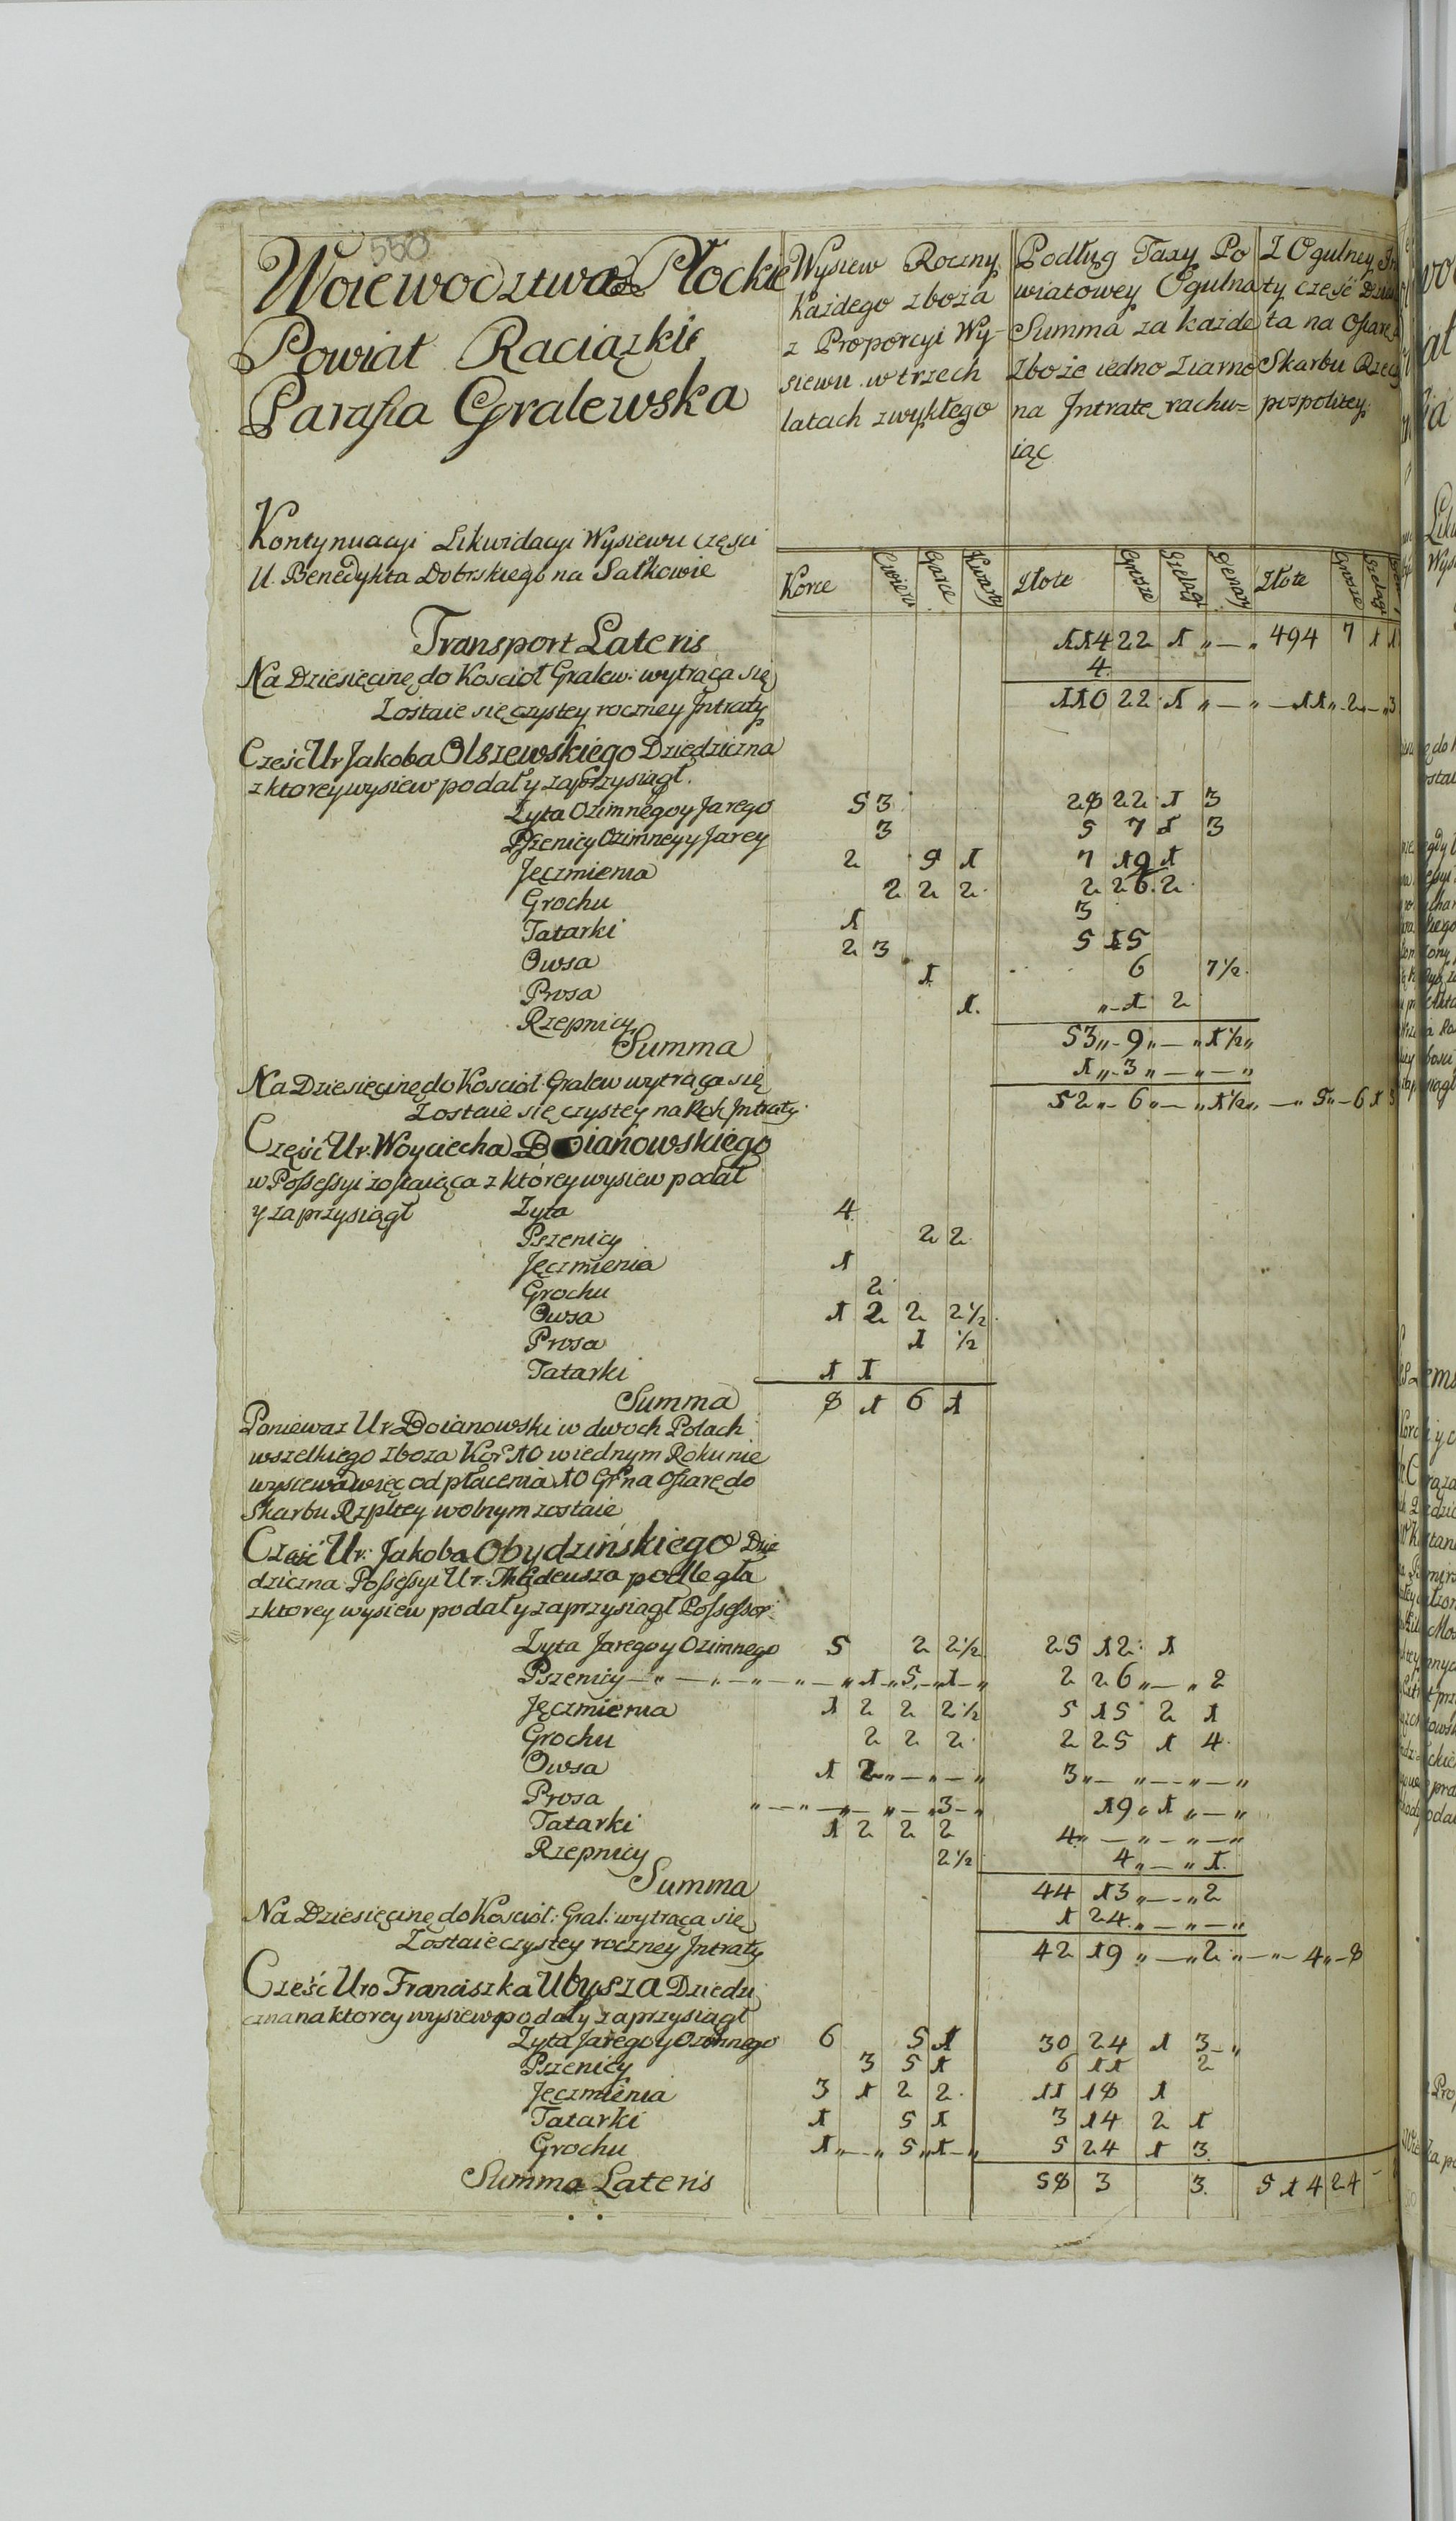 550
Woiewodztwo Płockie
Powiat Raciązkie
Parafia Gralewska
Wysiew Roczny
Każdego zboża
z Proporcyi Wy-
siewu w trzech
latach zwykłego
Podług Taxy Po
wiatowey Ogulna
Summa za każde
zboże iedno ziarno
na Jntratę rachu=
iąc
Z Ogulney
ty część
ta na Ofiarę
Skarbu Rzeczy
pospolitey
Kontynuacyi Likwidacyi Wysiewu części
U. Benedykta Dobrskiego na Sałkowie
Korce Cwierci Garce Kwarty Złote Grosze Szelągi Denary Złote Grosze Szelągi
Transport Lateris 114 22 1 „ — „ 494 7 1 1
Na Dziesięcinę do Kościoł Gralew: wytrąca się 4
Zostaie się czystey roczney Jntraty 110 22 1 „ — „ — 11 „ 2 „ — „ 3
Część Ur Jakoba Olszewskiego Dziedziczna
z ktorey wysiew podał y zaprzysiągł.
Zyta Ozimnego y Jarego 5 3 28 22 1 3
Pszenicy Ozimney y Jarey 3 5 7 1 3
Jęczmienia 2 9 1 7 19 1
Grochu 2 2 2 2 26 2
Tatarki 1 3
Owsa 2 3 5 15
Prosa 1 6 7½
Rzepnicy 1 „ 1 2
Summa 53 „ 9 „ — „ 1½ „
Na Dziesięcinę do Kościoł Gralew wytrąca się 1 „ 3 „ — „ — „
Zostaie się czystey na Rok Jntraty 52 „ 6 „ — „ 1½ „ — „ 5 „ 6 1 3
Część Ur. Woyciecha Doianowskiego
w Possessyi zostaiąca z ktorey wysiew podał
y zaprzysiągł Zyta 4
Pszenicy 2 2
Jęczmienia 1
Grochu 2
Owsa 1 2 2 2½
Prosa 1 ½
Tatarki 1 1
Summa 8 1 6 1
Ponieważ Ur Doianowski w dwoch Polach
wszelkiego zboża Kor 10 w iednym Roku nie
wysiewa więc od płacenia 10 Gr na Ofiarę do
Skarbu Rzpltey wolnym zostaie
Część Ur: Jakoba Obydzińskiego Dzie
dziczna Possessyi Ur. Thadeusza podległa
z ktorey wysiew podał y zaprzysiągł Possessor
Zyta Jarego y Ozimnego 5 2 2½ 25 12 1
Pszenicy — „ — „ — „ — „ — „ 1 „ 5 „ 1 — „ 2 26 „ — „ 2
Jęczmienia 1 2 2 2½ 5 15 2 1
Grochu 2 2 2 2 25 1 4
Owsa 1 2 „ — „ — „ 3 „ — „ — „ — „
Prosa „ — „ — „ — „ — „ 3 — „ 19 „ 1 „ — „
Tatarki 1 2 2 2 4 „ — „ — „ — „
Rzepnicy 2½ 4 „ — „ 1
Summa 44 13 „ — „ 2
Na Dziesięcinę do Kościoł: Gral: wytrąca się 1 24 „ — „ — „
Zostaie czystey roczney Jntraty 42 19 „ — „ 2 „ — „ — 4 „ 8
Część Uro Franciszka Ubysza Dziedzi
czna na ktorey wysiew podał y zaprzysiągł
Zyta Jarego y Ozimnego 6 5 1 30 24 1 3 — „
Pszenicy 3 5 1 6 11 2
Jęczmienia 3 1 2 2 11 18 1
Tatarki 1 5 1 3 14 2 1
Grochu 1 „ — „ 5 „ 1 — „ 5 24 1 3
Summa Lateris 58 3 3 514 24 -